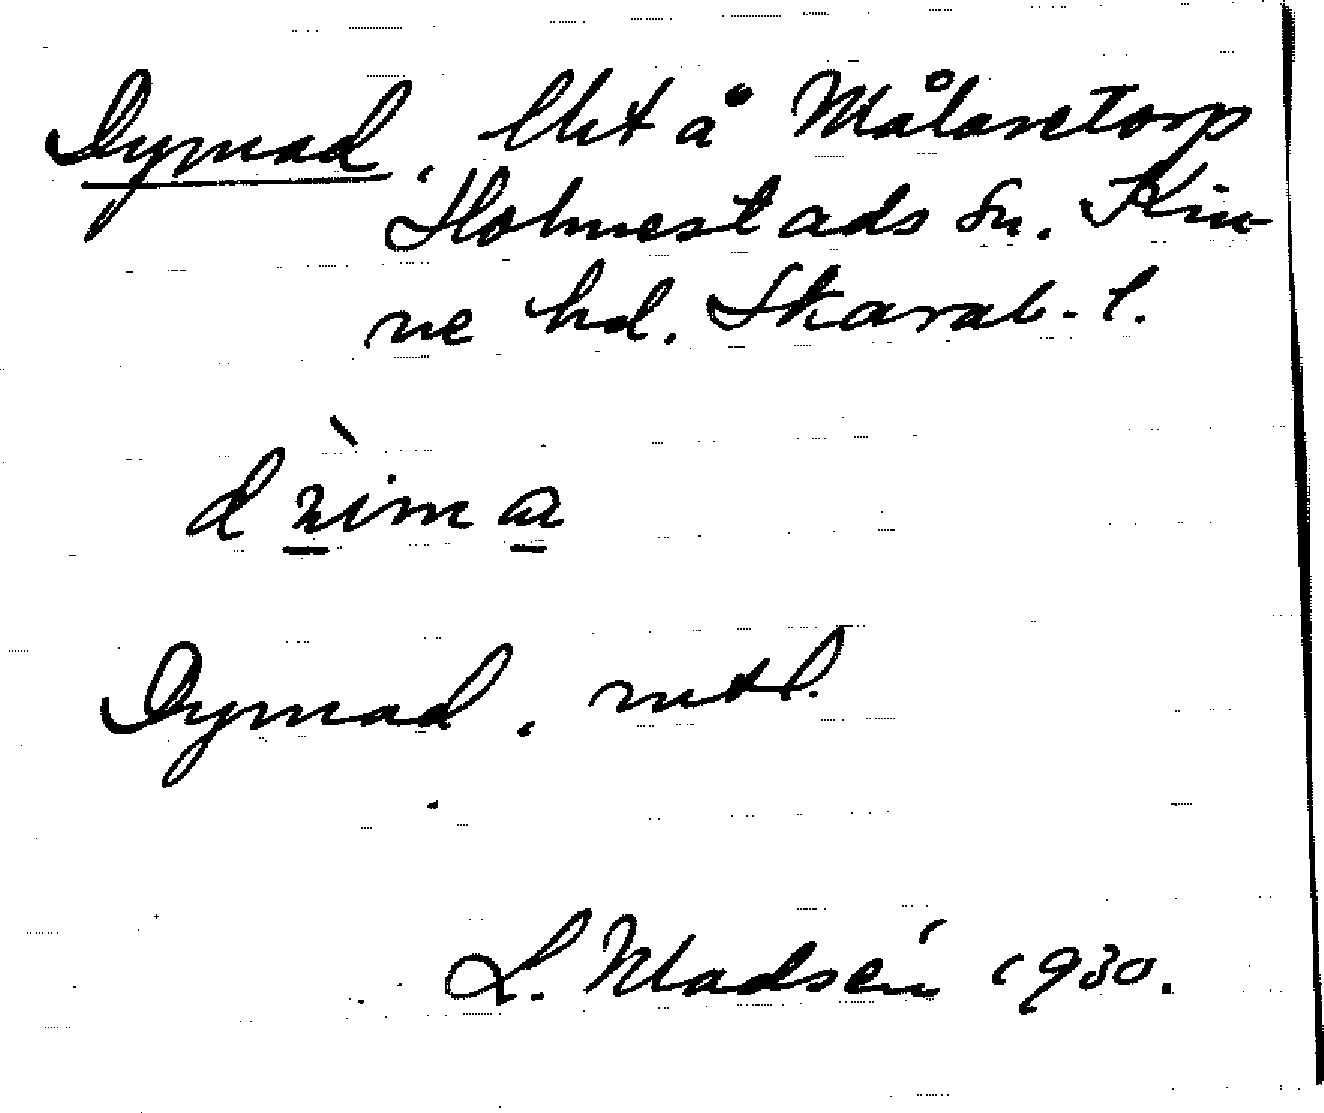 Dymad, lht å Målaretorp
Holmestads sn. Kin-
ne hd. Skarab. l.
Dymad, mtl.
L. Madsén 1930.